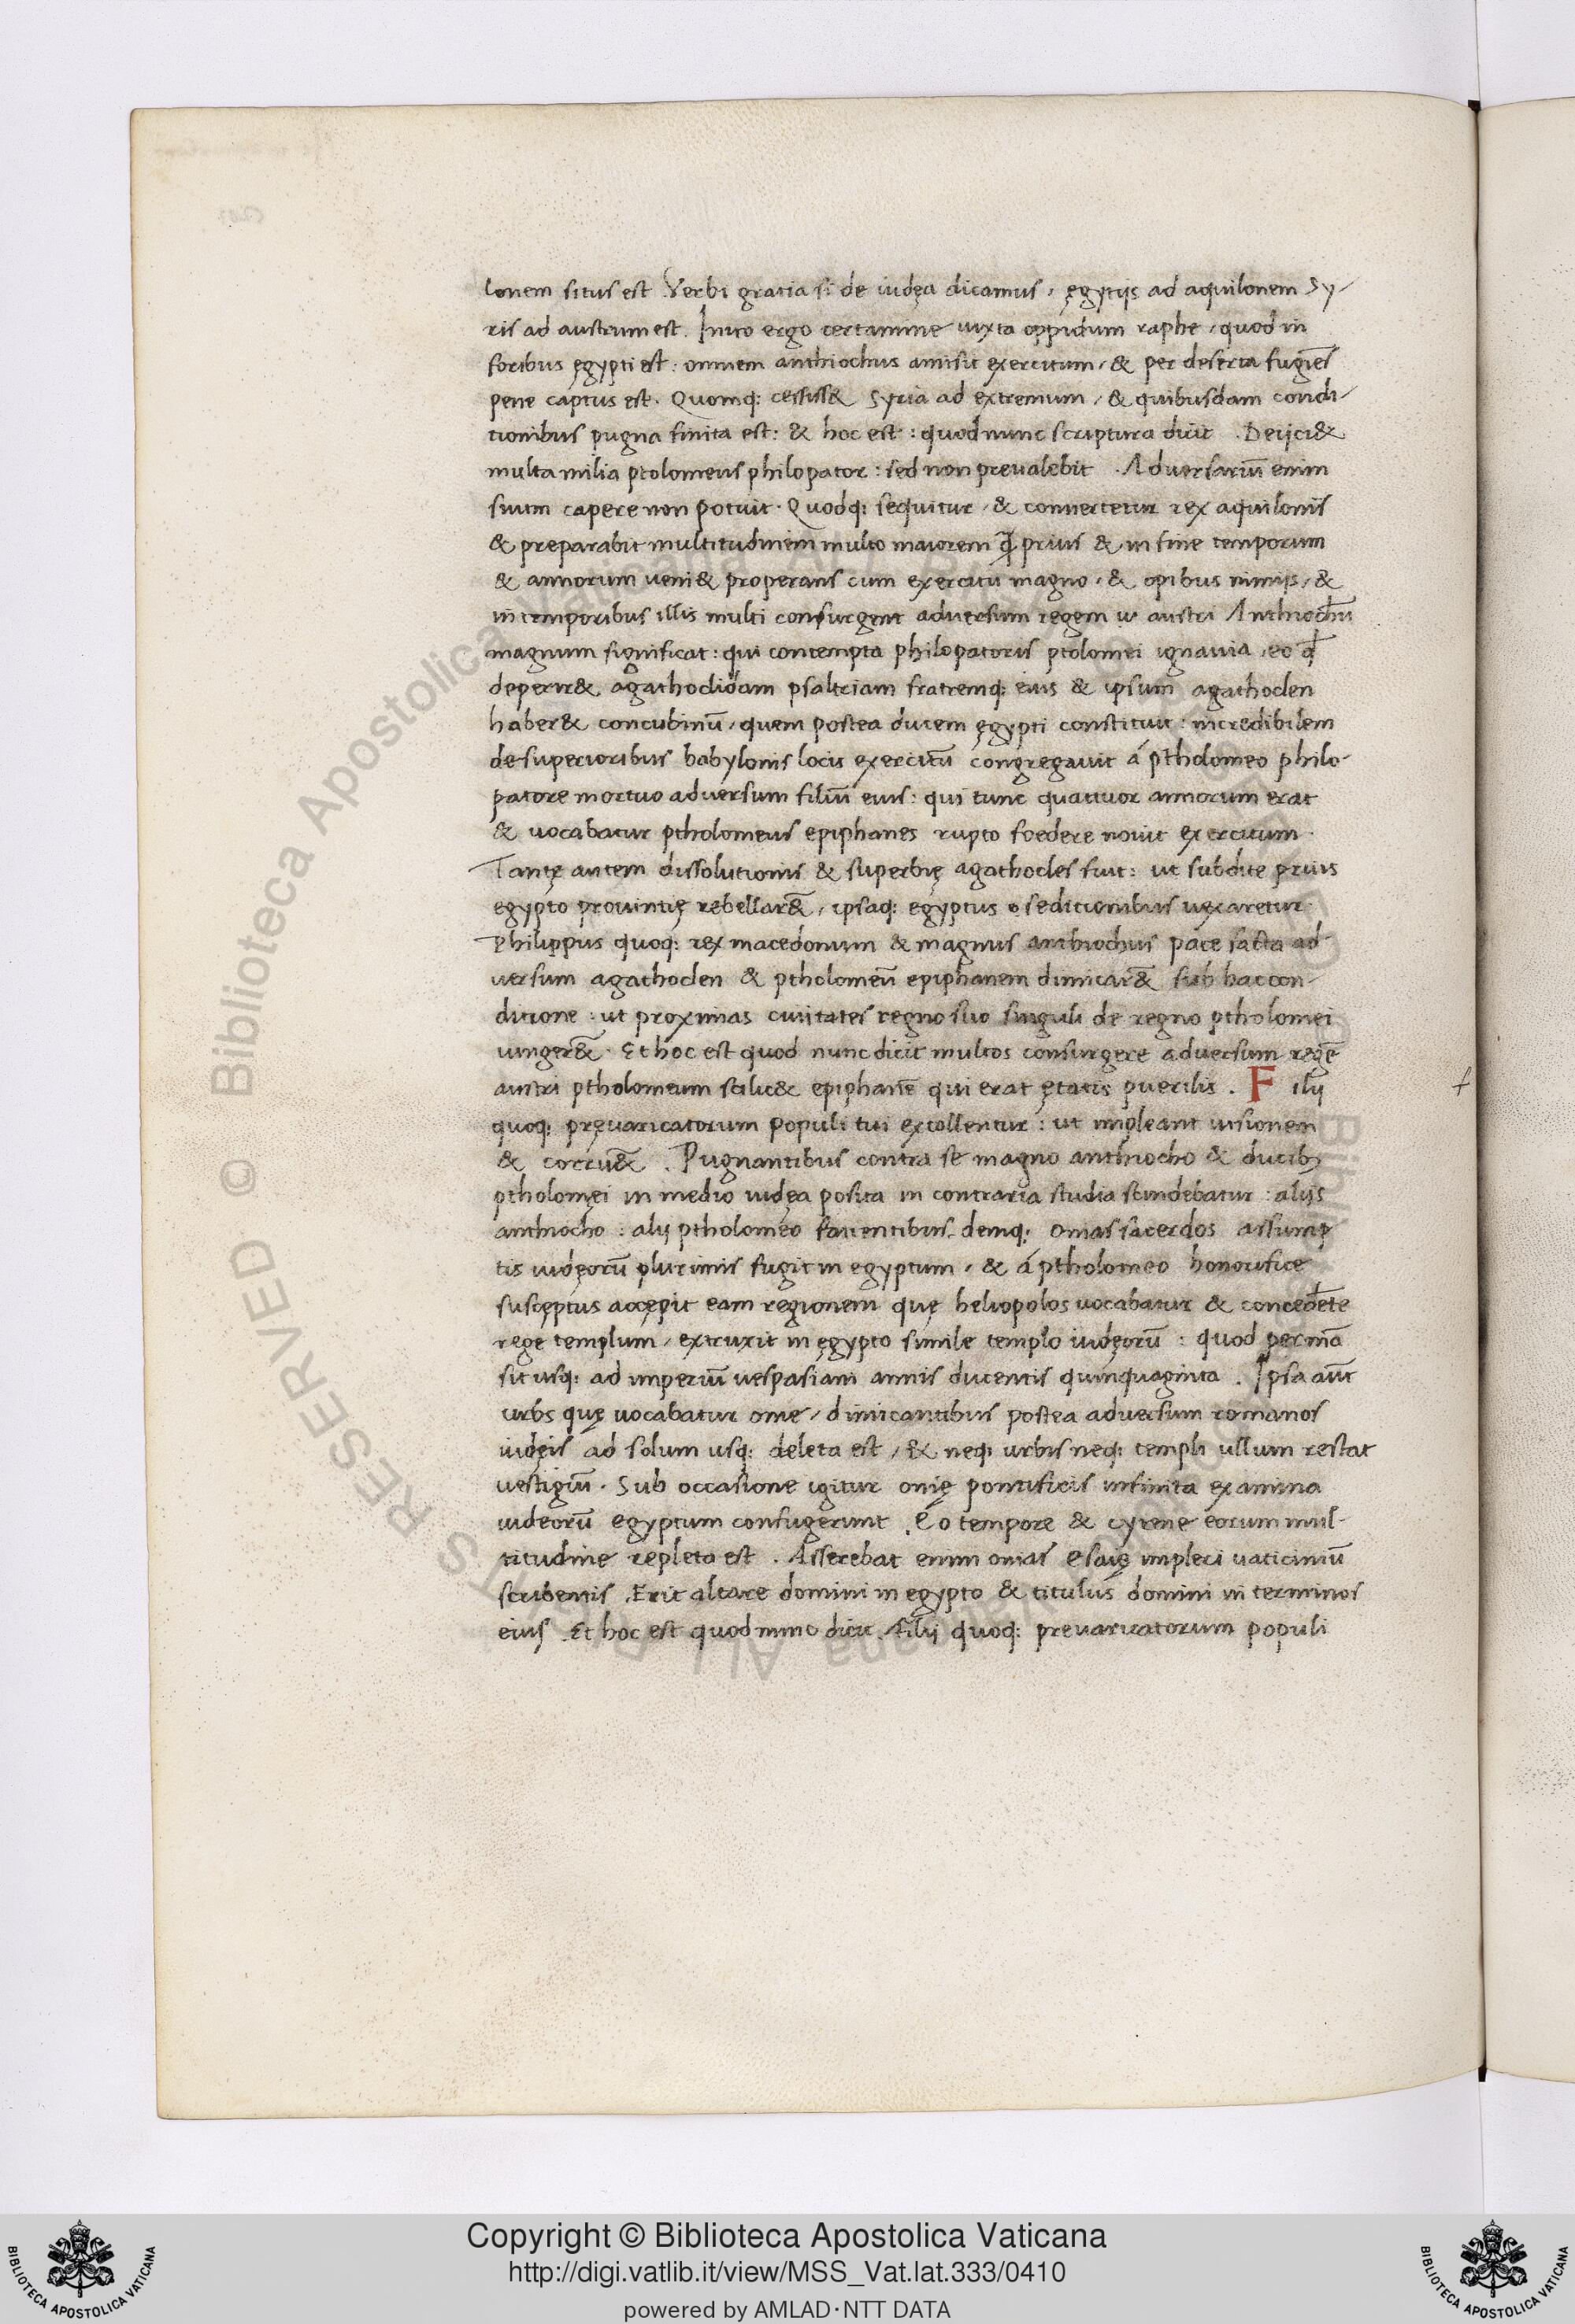 lonem situs est. Verbi gratia si de iudęa dicamus, ęgytijs ad aquilonem Sy-
ris ad austrum est. Inito ergo certamine iuxta oppidum raphe, quod in
foribus ęgypti est: omnem anthiochus amisit exercitum, & per deserta fugiēs
pene captus est. Quomq: cessiss& Syria ad extremum, & quibusdam condi-
tionibus pugna finita est: & hoc est: quod nunc scriptura dicit. Deijci&
multa milia ptolomeus philopator: sed non prevalebit. Adversariū enim
suum capere non potuit. Quodq: sequitur, & convertetur rex aquilonis
& preparabit multitudinem multo maiorem q̄ prius & in fine temporum
& annorum veni& properans cum exercitu magno, & opibus nimijs, &
in temporibus illis multi consurgent adversum regem austri Anthiochū
magnum significat: qui contempta philopatoris ptolomei ignavia, eo qd̄
deperir& agathoclidam psaltriam fratremq: eius & ipsum agathoclen
haber& concubinū, quem postea ducem ęgypti constituit: incredibilem
de superioribus babylonis locis exercitū congregavit á ptholomeo philo-
patore mortuo adversum filiū eius: qui tunc quattuor annorum erat
& vocabatur ptholomeus epiphanes rupto foedere movit exercitum.
Tantę autem dissolutionis & superbię agathocles fuit: ut subdite prius
egypto provintię rebellar&̄, ipsaq: egyptus seditionibus vexaretur.
Philippus quoq: rex macedonum & magnus anthiochus pace facta ad-
versum agathoclen & ptholomeū epiphanem dimicar&̄ sub hac con-
ditione: ut proximas civitates regno suo singuli de regno ptholomei
iunger&̄. Et hoc est quod nunc dicit multos consurgere adversum regē
austri ptholomeum scilic& epiphanē qui erat ętatis puerilis. F ilij
quoq: pręvaricatorum populi tui extollentur: ut impleant visionem
& corru&̄. Pugnantibus contra se magno anthiocho & ducib;
ptholomęi in medio iudęa posita in contraria studia scindebatur: alijs
anthiocho: alij ptholomeo faventibus. denq: onias sacerdos assump
tis iudęorū plurimis fugit in egyptum, & á ptholomeo honorifice
suscęptus accępit eam regionem quę heliopolos vocabatur & concedēte
rege templum, extruxit in ęgypto simile templo iudęorū: quod permā
sit usq: ad imperiū vespasiani annis ducentis quinquaginta. Ipsa aūt
urbs quę vocabatur onię, dimicantibus postea adversum romanos
iudęis ad solum usq: deleta est, & neq: urbis neq: templi ullum restat
vestigiū. Sub occasione igitur onię pontificis infinita examina
iudeorū egyptum confugerunt. Eo tempore & cyrene eorum mul-
titudine repleta est. Asserebat enim onias esaię impleri vaticiniū
scribentis. Erit altare domini in egypto & titulus domini in terminos
eius. Et hoc est quod nunc dicit. filij quoq: prevaricatorum populi
© Biblioteca Apostolica Vaticana
ALL RIGHTS RESERVED
Copyright © Biblioteca Apostolica Vaticana
http://digi.vatlib.it/view/MSS_Vat.lat.333/0410
powered by AMLAD·NTT DATA
BIBLIOTECA APOSTOLICA VATICANA
BIBLIOTECA APOSTOLICA VATICANA